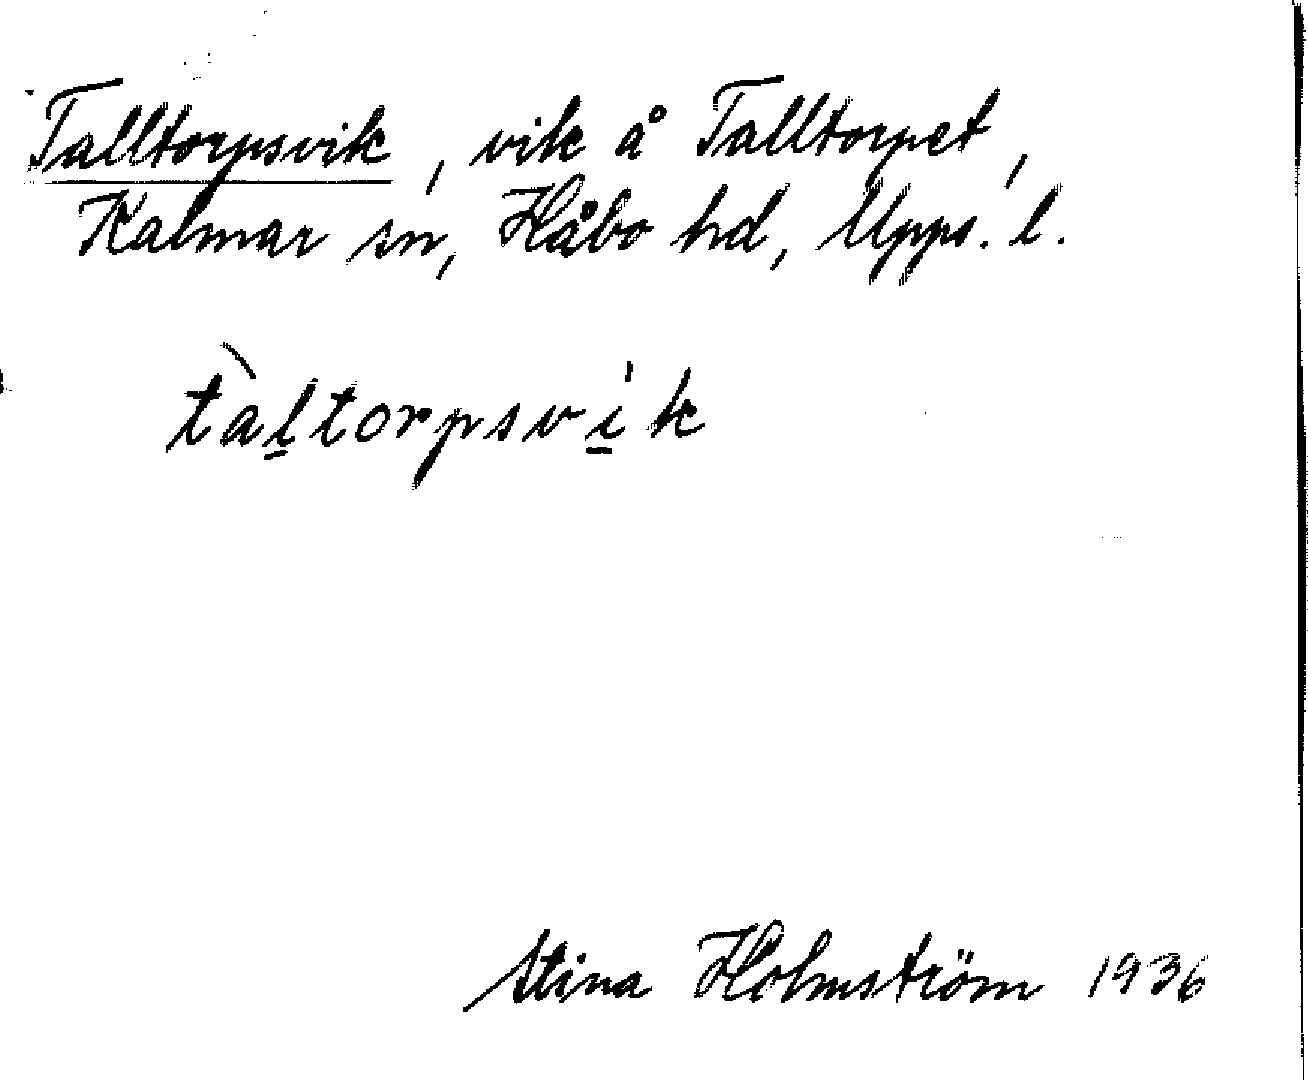 Talltorpsvik, vik å Talltorpet,
Kalmar sn, Håbo hd, Upps. l.
tàl̲torpsvi̲̍k
Stina Holmström 1936